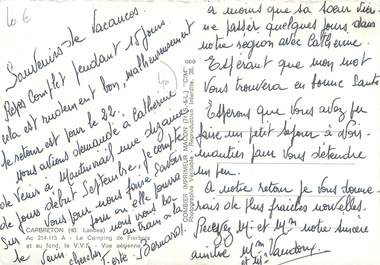 10 €
Souvenirs de Vacances.
Repos complet pendant 15 jours.
cela est rudement bon, malheureusement
le retour est pour le 22.
Nous avions demandé à Catherine
de venir à une dizaine
de jours début Septembre, je compte
Sur vous pour nous faire savoir
le jour ou elle pourra
au train à la
chercher
Ferté Bernard.
à moins que sa soeur
ne passer quelques jours dans
notre région avec Catherine.
Espérant que mon mot
vous trouvera en bonne santé
Espérons que vous avez pu
faire un petit séjour à
pour vous détendre
un peu.
A notre retour je vous donne
rais de plus fraîches nouvelles.
Recevez M. et Mme notre sincère
amitié Mme
CAPBRETON (40. Landes)
Ac 214-115 A - Le Camping de Fierbois
et au fond, le V.V.F. - Vue aérienne
COMBIER IMPRIMEUR MACON (71) "CIM"
Photographie Véritable - Reproduction Interdite